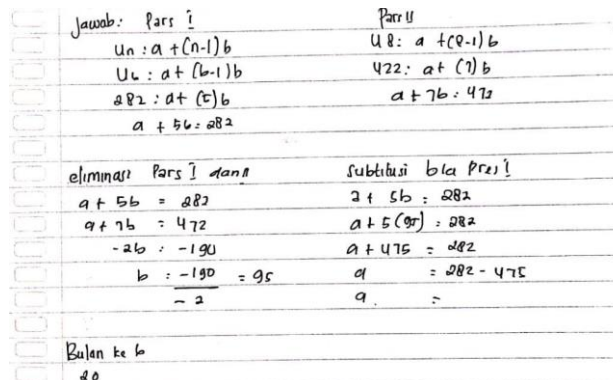 Jawab: Pars I
Un : a + (n-1) b
U6 : a + (6-1) b
282 : a + (5) b
a + 5b = 282
Pars II
U8 : a + (8-1) b
422 : a + (7) b
a + 7b : 472
eliminasi Pars I dan II
a + 5b = 282
a + 7b = 472
-2b : -190
b : -190 = 95
-2
Subtitusi b ke Pres I
a + 5b : 282
a + 5 (95) : 282
a + 475 = 282
a = 282 - 475
a . =
Bulan ke 6